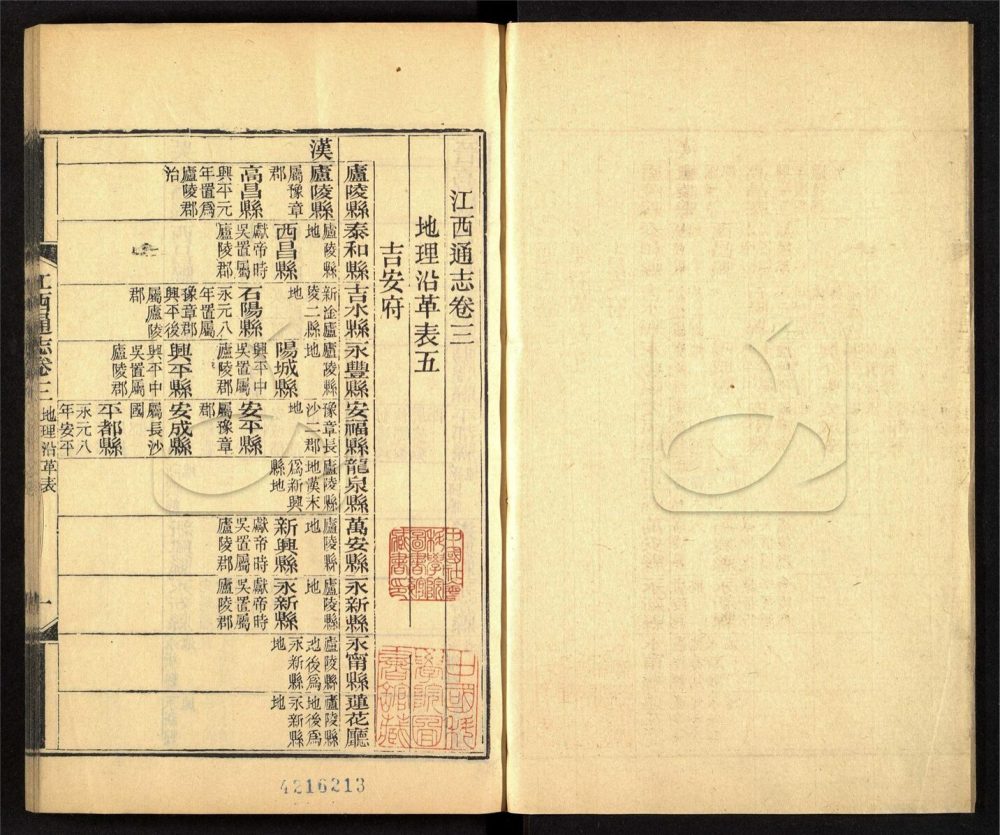 江西通志卷三
地理沿革表五
吉安府
廬陵縣
泰和縣
吉水縣
永豐縣
安福縣
龍泉縣
萬安縣
永新縣
永甯縣
蓮花廳
漢
廬陵縣
屬豫章
郡
高昌縣
興平元
年置為
廬陵郡
治
廬陵縣
地
西昌縣
獻帝時
吳置屬
廬陵郡
新淦廬
陵二縣
地
石陽縣
永元八
年置屬
豫章郡
興平後
屬廬陵
郡
廬陵縣
地
陽城縣
興平中
吳置屬
廬陵郡
興平縣
興平中
吳置屬
廬陵郡
豫章長
沙二郡
地
安平縣
屬豫章
郡
安成縣
屬長沙
國
平都縣
永元八
年安平
廬陵縣
地漢末
為新興
縣地
廬陵縣
地
新興縣
獻帝時
吳置屬
廬陵郡
廬陵縣
地
永新縣
獻帝時
吳置屬
廬陵郡
廬陵縣
地後為
永新縣
地
廬陵縣
地後為
永新縣
地
江西通志卷三
地理沿革表
一
中國科
學院圖
書館藏
4216213